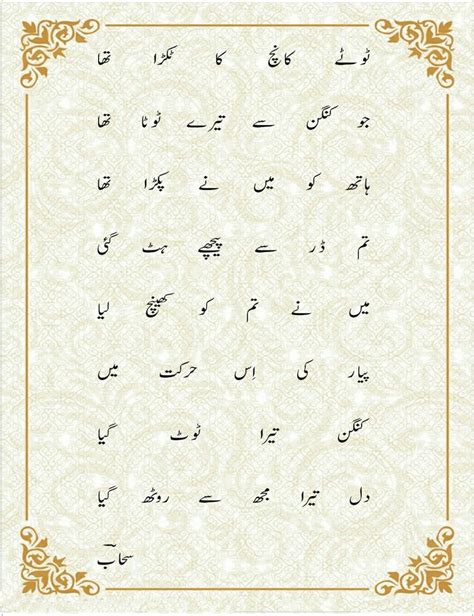 ٹوٹے کانچ کا ٹکڑا تھا
جو کنگن سے تیرے ٹوٹا تھا
ہاتھ کو میں نے پکڑا تھا
تم ڈر سے پیچھے ہٹ گئی
میں نے تم کو کھینچ لیا
پیار کی اِس حرکت میں
کنگن تیرا ٹوٹ گیا
دل تیرا مجھ سے روٹھ گیا
سحابؔ